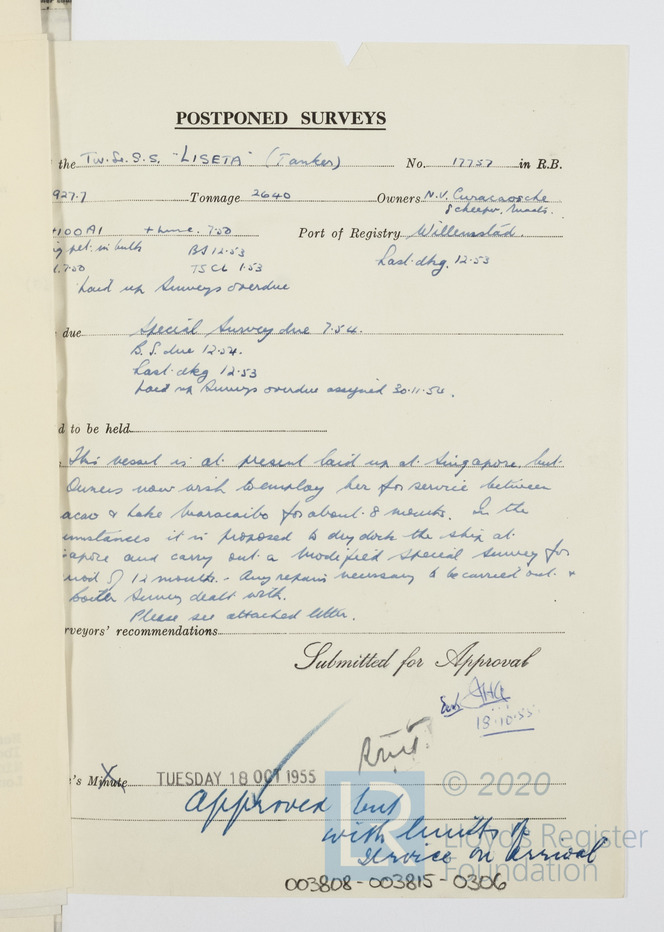 POSTPONED SURVEYS
the Tw. Sc. S.S. "LISETA" (Tanker) No. 17757 in R.B.
927.7 Tonnage 2640 Owners N.V. Curacaosche
Scheepv. Maats.
+100A1 +LMC. 7.50 Port of Registry Willemstad.
pet. in bulk BS 12.53 Last dkg. 12.53
7.50 TSCL 1.53
Laid up Surveys overdue
due Special Survey due 7.54.
B.S. due 12.54.
Last dkg 12.53
Laid up Surveys overdue assigned 30.11.54.
d to be held
This vessel is at present laid up at Singapore, but
Owners now wish to employ her for service between
acao & Lake Maracaibo for about 8 months. In the
umstances it is proposed to dry dock the ship at
apore and carry out a modified Special Survey for
riod of 12 months. - Any repairs necessary to be carried out &
boiler Survey dealt with.
Please see attached letter.
rveyors' recommendations
Submitted for Approval
18.10.55
's Minute TUESDAY 18 OCT 1955
Approved but
with limits of
service on arrival
© 2020
LR
Lloyd's Register
Foundation
003808-003815-0306